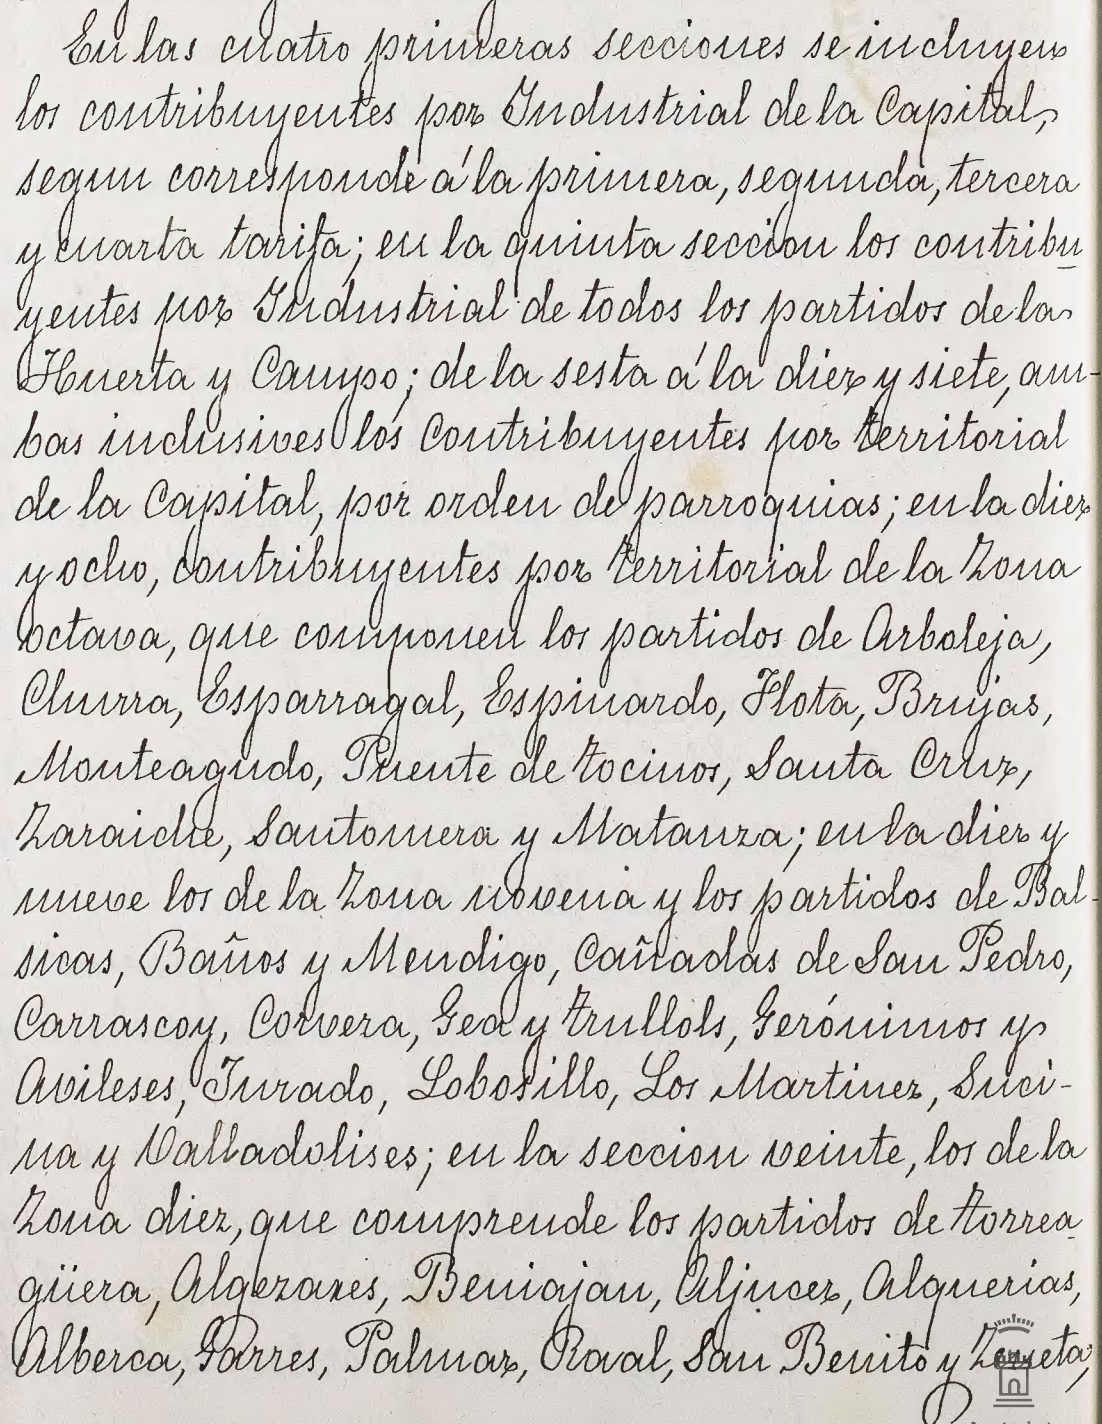 En las cuatro primeras secciones se incluyen
los contribuyentes por Industrial de la Capital,
segun corresponde á la primera, segunda, tercera
y cuarta tarifa; en la quinta seccion los contribu
yentes por Industrial de todos los partidos de la
Huerta y Campo; de la sesta á la diez y siete, am-
bas inclusives los Contribuyentes por territorial
de la Capital, por orden de parroquias; en la diez
y ocho, contribuyentes por territorial de la Zona
octava, que componen los partidos de Arboleja,
Churra, Esparragal, Espinardo, Flota, Brujas,
Monteagudo, Puente de tocinos, Santa Cruz,
Zaraiche, Santomera y Matanza; en la diez y
nueve los de la Zona novena y los partidos de Bal-
sicas, Baños y Mendigo, Cañadas de San Pedro,
Carrascoy, Corvera, Gea y trullols, Gerónimos y
Avileses, Jurado, Lobosillo, Los Martinez, Suci-
na y Valladolises; en la seccion veinte, los de la
Zona diez, que comprende los partidos de torrea
güera, Algezares, Beniajan, Aljucer, Alquerias,
Alberca, Garres, Palmar, Raal, San Benito y Zeneta,